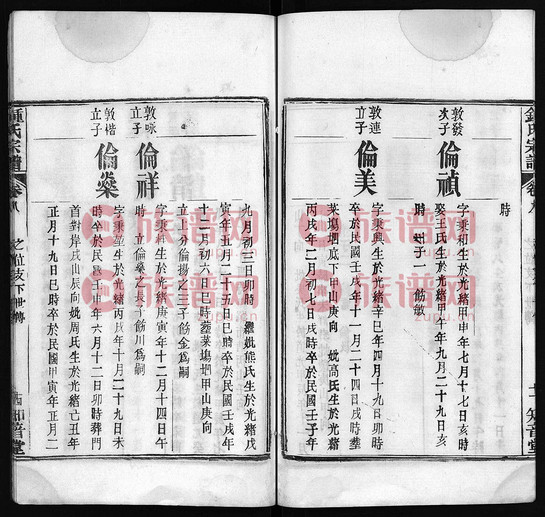 鍾氏宗譜
卷八
知音堂
時
敦發
次子
倫禎
字秉和生於光緒甲申年七月十七日亥時
娶王氏生於光緒甲午年九月二十九日亥
時 子 餝敏
敦連
立子
倫美
字秉興生於光緒辛巳年四月十九日卯時
卒於民國壬戌年十一月二十四日戌時葬
菜塆垇底下甲山庚向 娩高氏生於光緒
丙戌年二月初七日戌時卒於民國壬子年
九月初三日卯時 繼娩熊氏生於光緒戊
寅年五月二十五日巳時卒於民國壬戌年
十二月初六日巳時葬菜塆垇甲山庚向
立三分倫揚之三子餝金為嗣
敦咏
立子
倫祥
字秉 生於光緒庚寅年十二月十四日午
時 立倫燊之長子餝川為嗣
敦楷
立子
倫燊
字秉堃生於光緒丙戌年十月二十九日未
時卒於民國 年六月十二日卯時葬門
首對岸戌山辰向 娩周氏生於光緒己丑年
正月十九日巳時卒於民國甲寅年正月二
鍾氏宗譜
卷八
之位支下世傳
知音堂
族谱网
zupu.cn